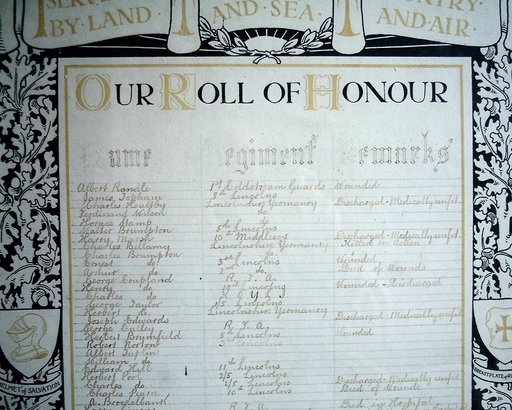 BY·LAND· AND·SEA· AND·AIR·
OUR ROLL OF HONOUR
Name Regiment Remarks
Albert Randle 1st Coldstream Guards Wounded
James Topham 8th Lincolns
Charles Houlpby Lincolnshire Yeomanry Discharged-Medically unfit.
Ferdinand Wilson do
Horace Stamp do
Walter Brumpton 5th Lincolns
Harry Marsh 10th Middlesex Discharged-Medically unfit.
Charles Bellamy Lincolnshire Yeomanry Killed in Action
Charles Brumpton do
Ernest do 3rd Lincolns Wounded
Arthur do 2nd do Died of Wounds
George Coupland R. F. A.
Henry do 10th Lincolns Wounded - Discharged
Charles do
George Taylor 1/5 Lincolns
Herbert do Lincolnshire Yeomanry
Joseph Edwards Discharged-Medically unfit
George Culley R. F. A.
Herbert Brumfield 5th Lincolns
Robert Norton Lincolns
Albert Taplin
William do
Edward Hill 11th Lincolns
Herbert Pool 2/5 Lincolns
Charles do 2/5 Lincolns Discharged-Medically unfit
Charles Pearce 10th Lincolns Died of Wounds
A. Brocklebank Died in Hospital
R. F. A.
HELMET of SALVATION
BREASTPLATE of